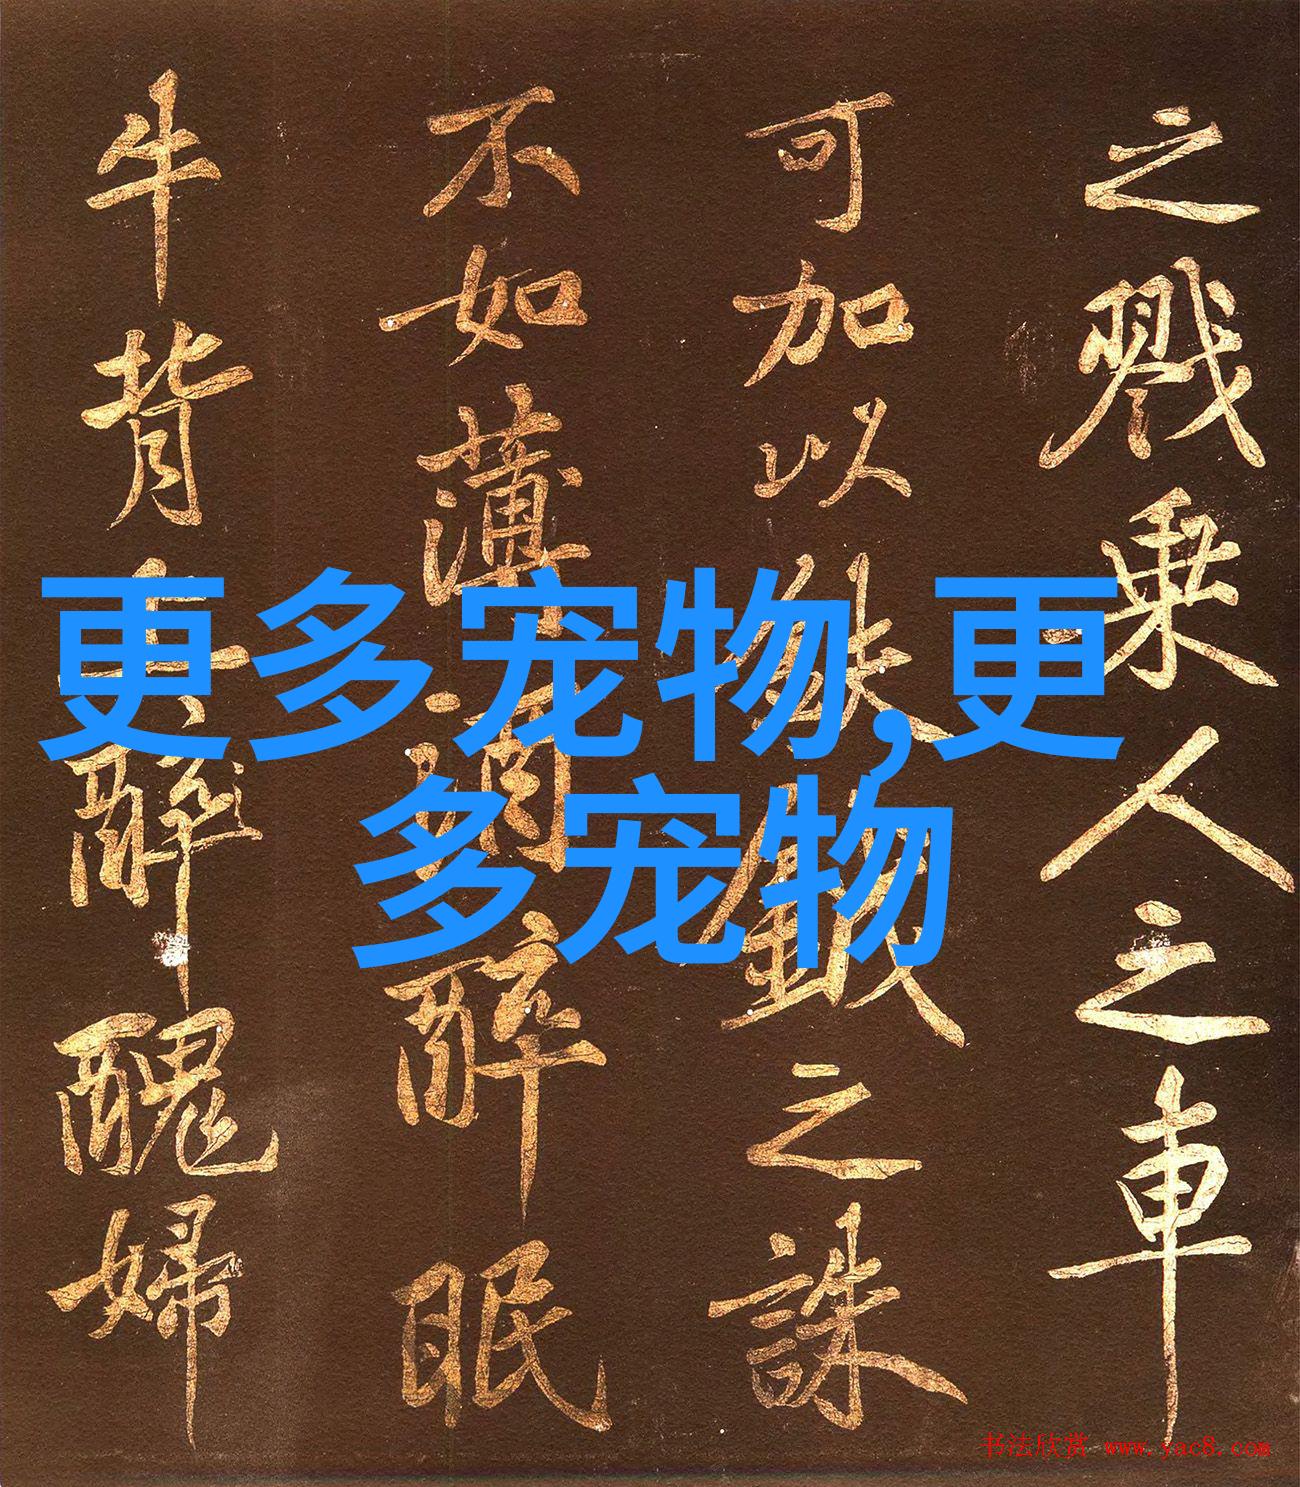 之戮乗人之車
可加以鈇鉞之誅
不如薄酒醉眠
牛背上醉醜婦
更多宠物,更
多宠物
书法欣赏 www.yac8.com